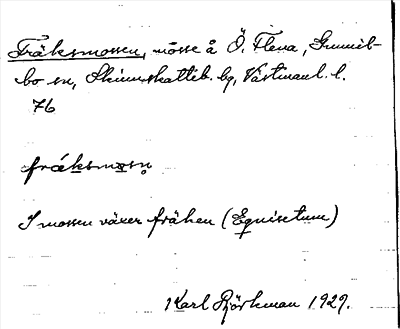 Fräksmossen, mosse å Ö. Flena, Gunnil-
bo sn, Skinnskatteb. bg, Västmanl. l.
76
fräksmosṇ
I mossen växer fräken (Equisetum)
Karl Björkman 1929.